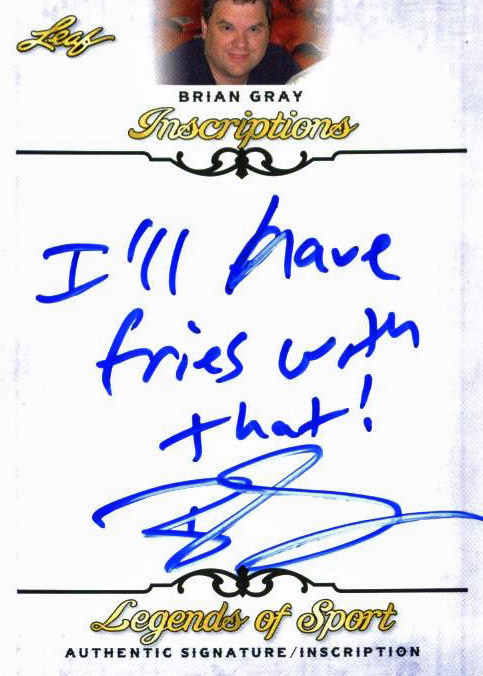 Leaf
BRIAN GRAY
Inscriptions
I'll have
fries with
that!
Legends of Sport
AUTHENTIC SIGNATURE/INSCRIPTION